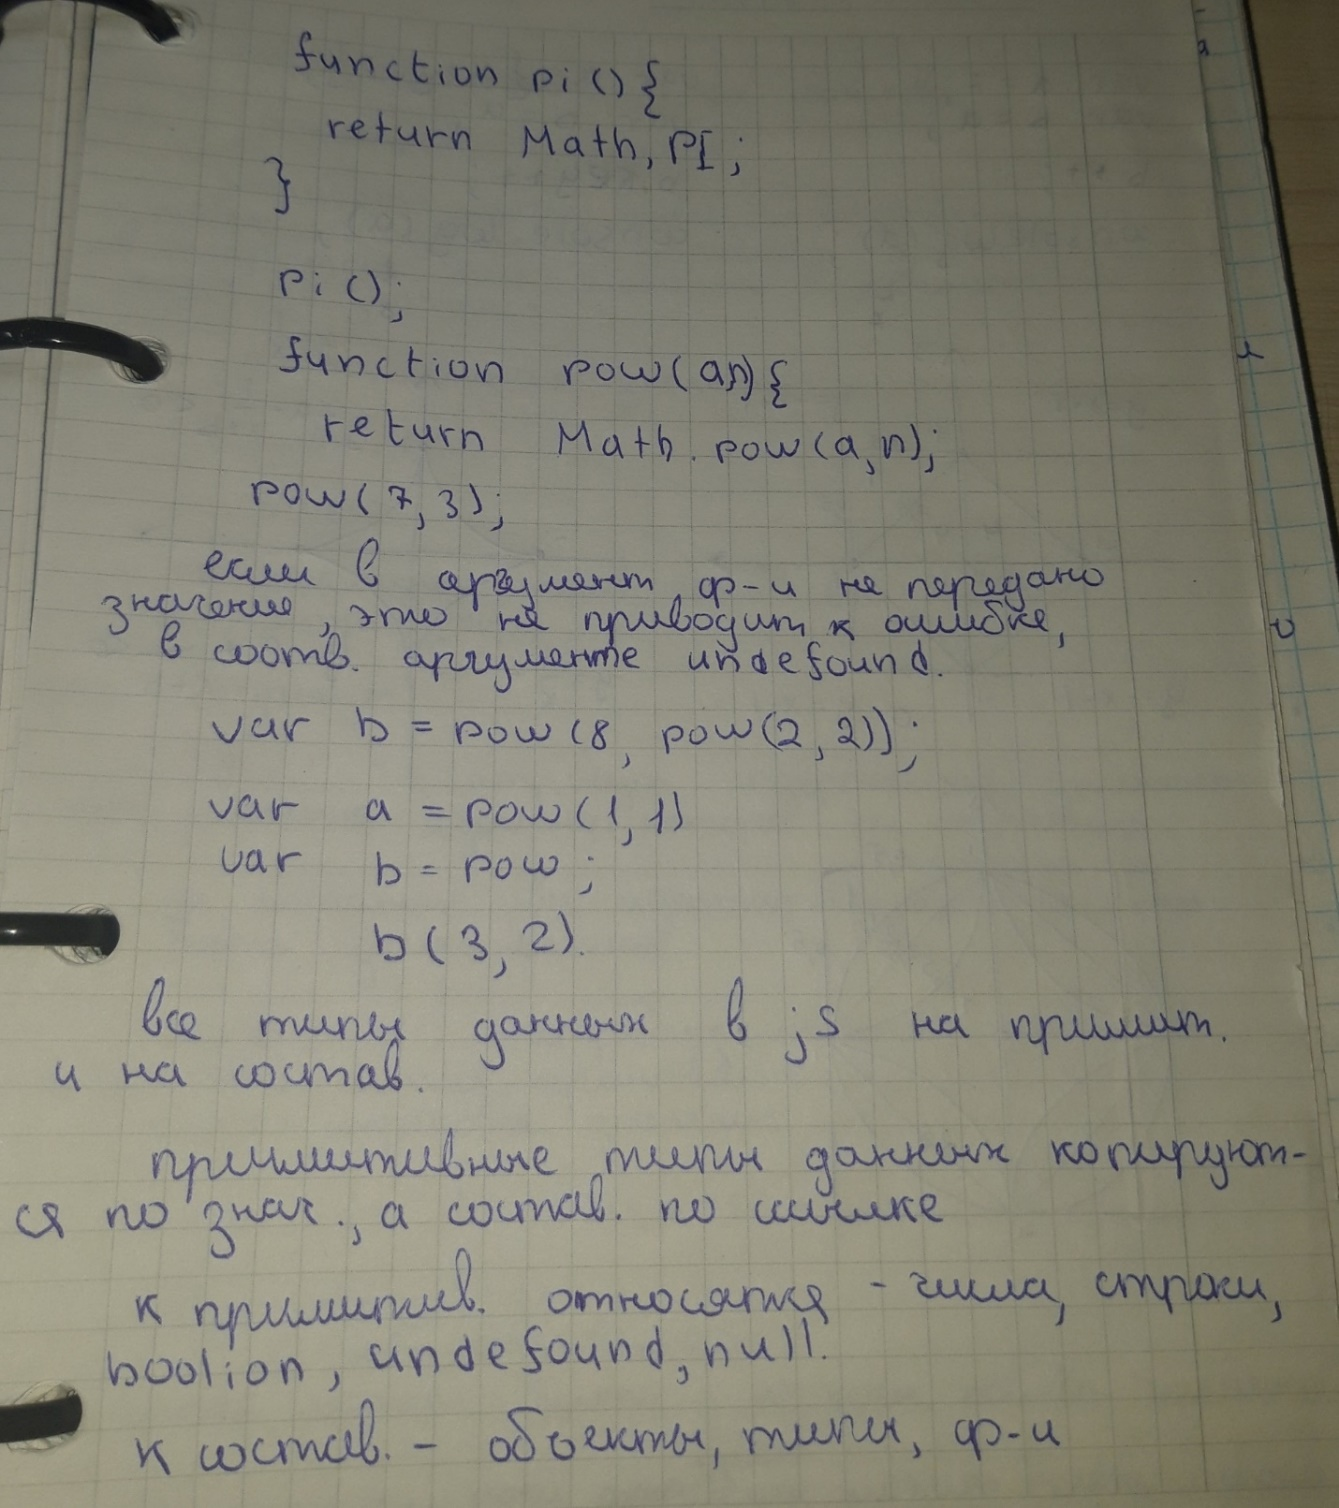 function pi () {
return Math, PI;
}
pi ();
function pow (a,n) {
return Math. pow (a, n);
pow ( 7, 3);
если в аргумент ф-и не передано
значение, это не приводит к ошибке,
в соотв. аргументе undefound.
var b = pow (8, pow (2, 2));
var a = pow (1, 1)
var b = pow ;
b ( 3, 2).
все типы данных в js на примит.
и на состав.
примитивные типы данных копируют-
ся по знач., а состав. по ссылке
к примитив. относятся - числа, строки,
boolion, undefound, null.
к состав. - объекты, типы, ф-и